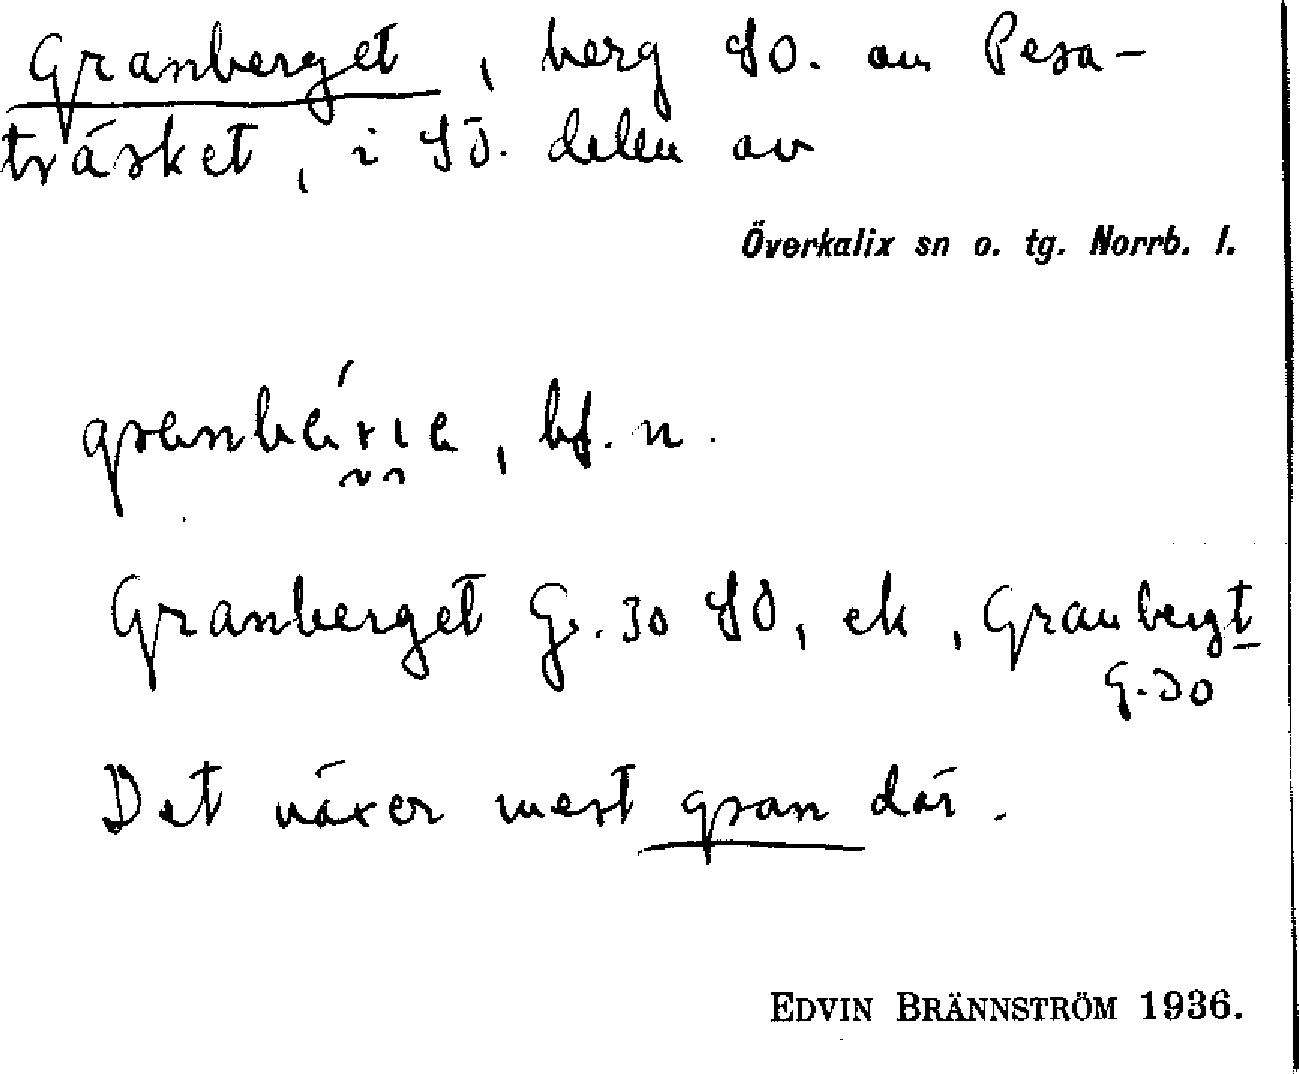 Granberget, berg SO. om Pesa-
träsket, i SÖ. delen av
Överkalix sn o. tg. Norrb. l.
bf. n.
Granberget G. 30 SO, ek, Granbergt
G. 30
Det växer mest gran där.
EDVIN BRÄNNSTRÖM 1936.